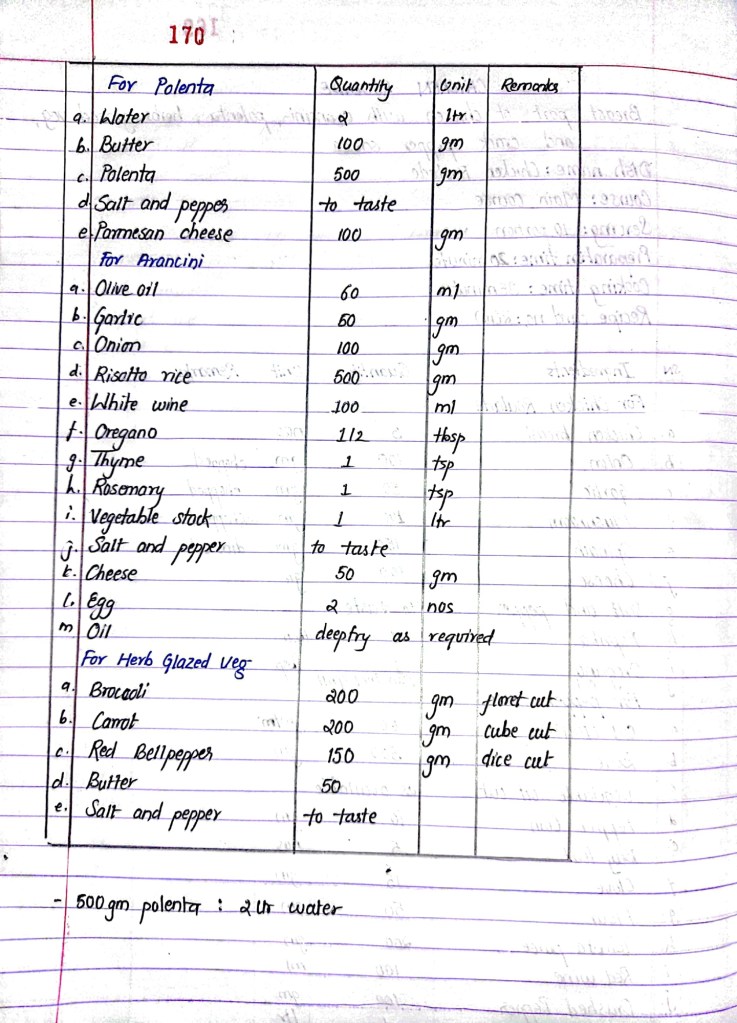 170
For Polenta Quantity Unit Remarks
a. Water 2 ltr
b. Butter 100 gm
c. Polenta 500 gm
d. Salt and pepper to taste
e. Parmesan cheese 100 gm
For Arancini
a. Olive oil 60 ml
b. Garlic 50 gm
c. Onion 100 gm
d. Risotto rice 500 gm
e. White wine 100 ml
f. Oregano 1/2 tbsp
g. Thyme 1 tsp
h. Rosemary 1 tsp
i. Vegetable stock 1 ltr
j. Salt and pepper to taste
k. Cheese 50 gm
l. Egg 2 nos
m Oil deepfry as required
For Herb Glazed Veg
a. Brocooli 200 gm floret cut
b. Carrot 200 gm cube cut
c. Red Bellpepper 150 gm dice cut
d. Butter 50
e. Salt and pepper to taste
- 500 gm polenta : 2 ltr water